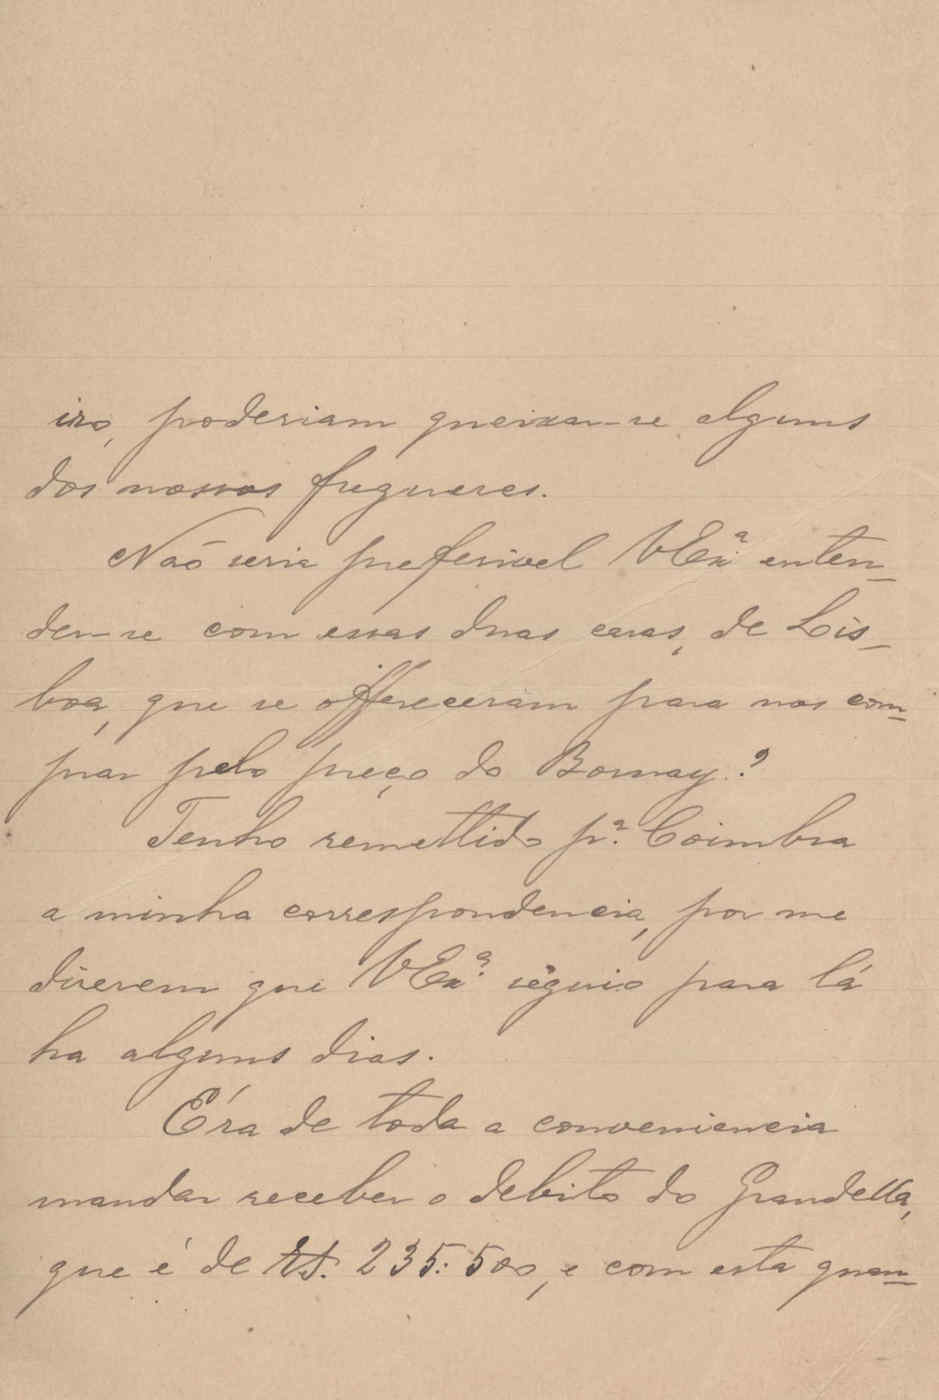 isso, poderiam queixar-se alguns
dos nossos freguezes.
Não seria preferivel VExª enten-
der-se com essas duas casas, de Lis-
boa, que se offereceram para nos com-
prar pelo preço do Bornay?
Tenho remettido pª. Coimbra
a minha correspondencia, por me
dizerem que VExª. seguio para lá
ha alguns dias.
Éra de toda a conveniencia
mandar receber o debito do Grandella,
que é de Rs. 235:500, e com esta quan-